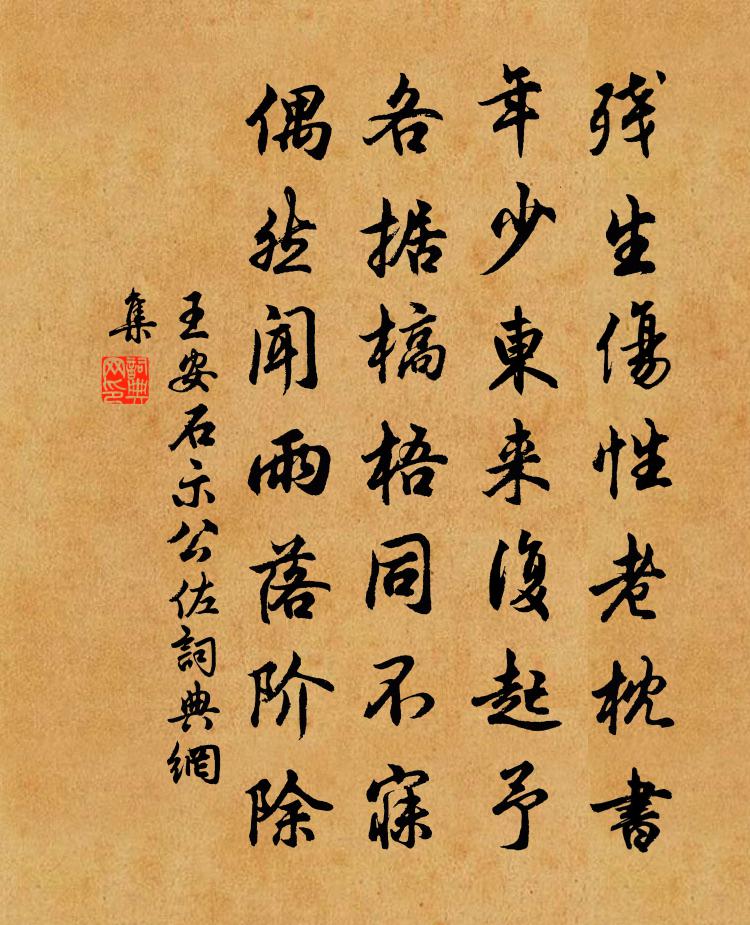 残生傷性老枕書
年少東来復起予
各据槁梧同不寐
偶然闻雨落阶除
王安石示公佐詞典網
集
詞典
网印